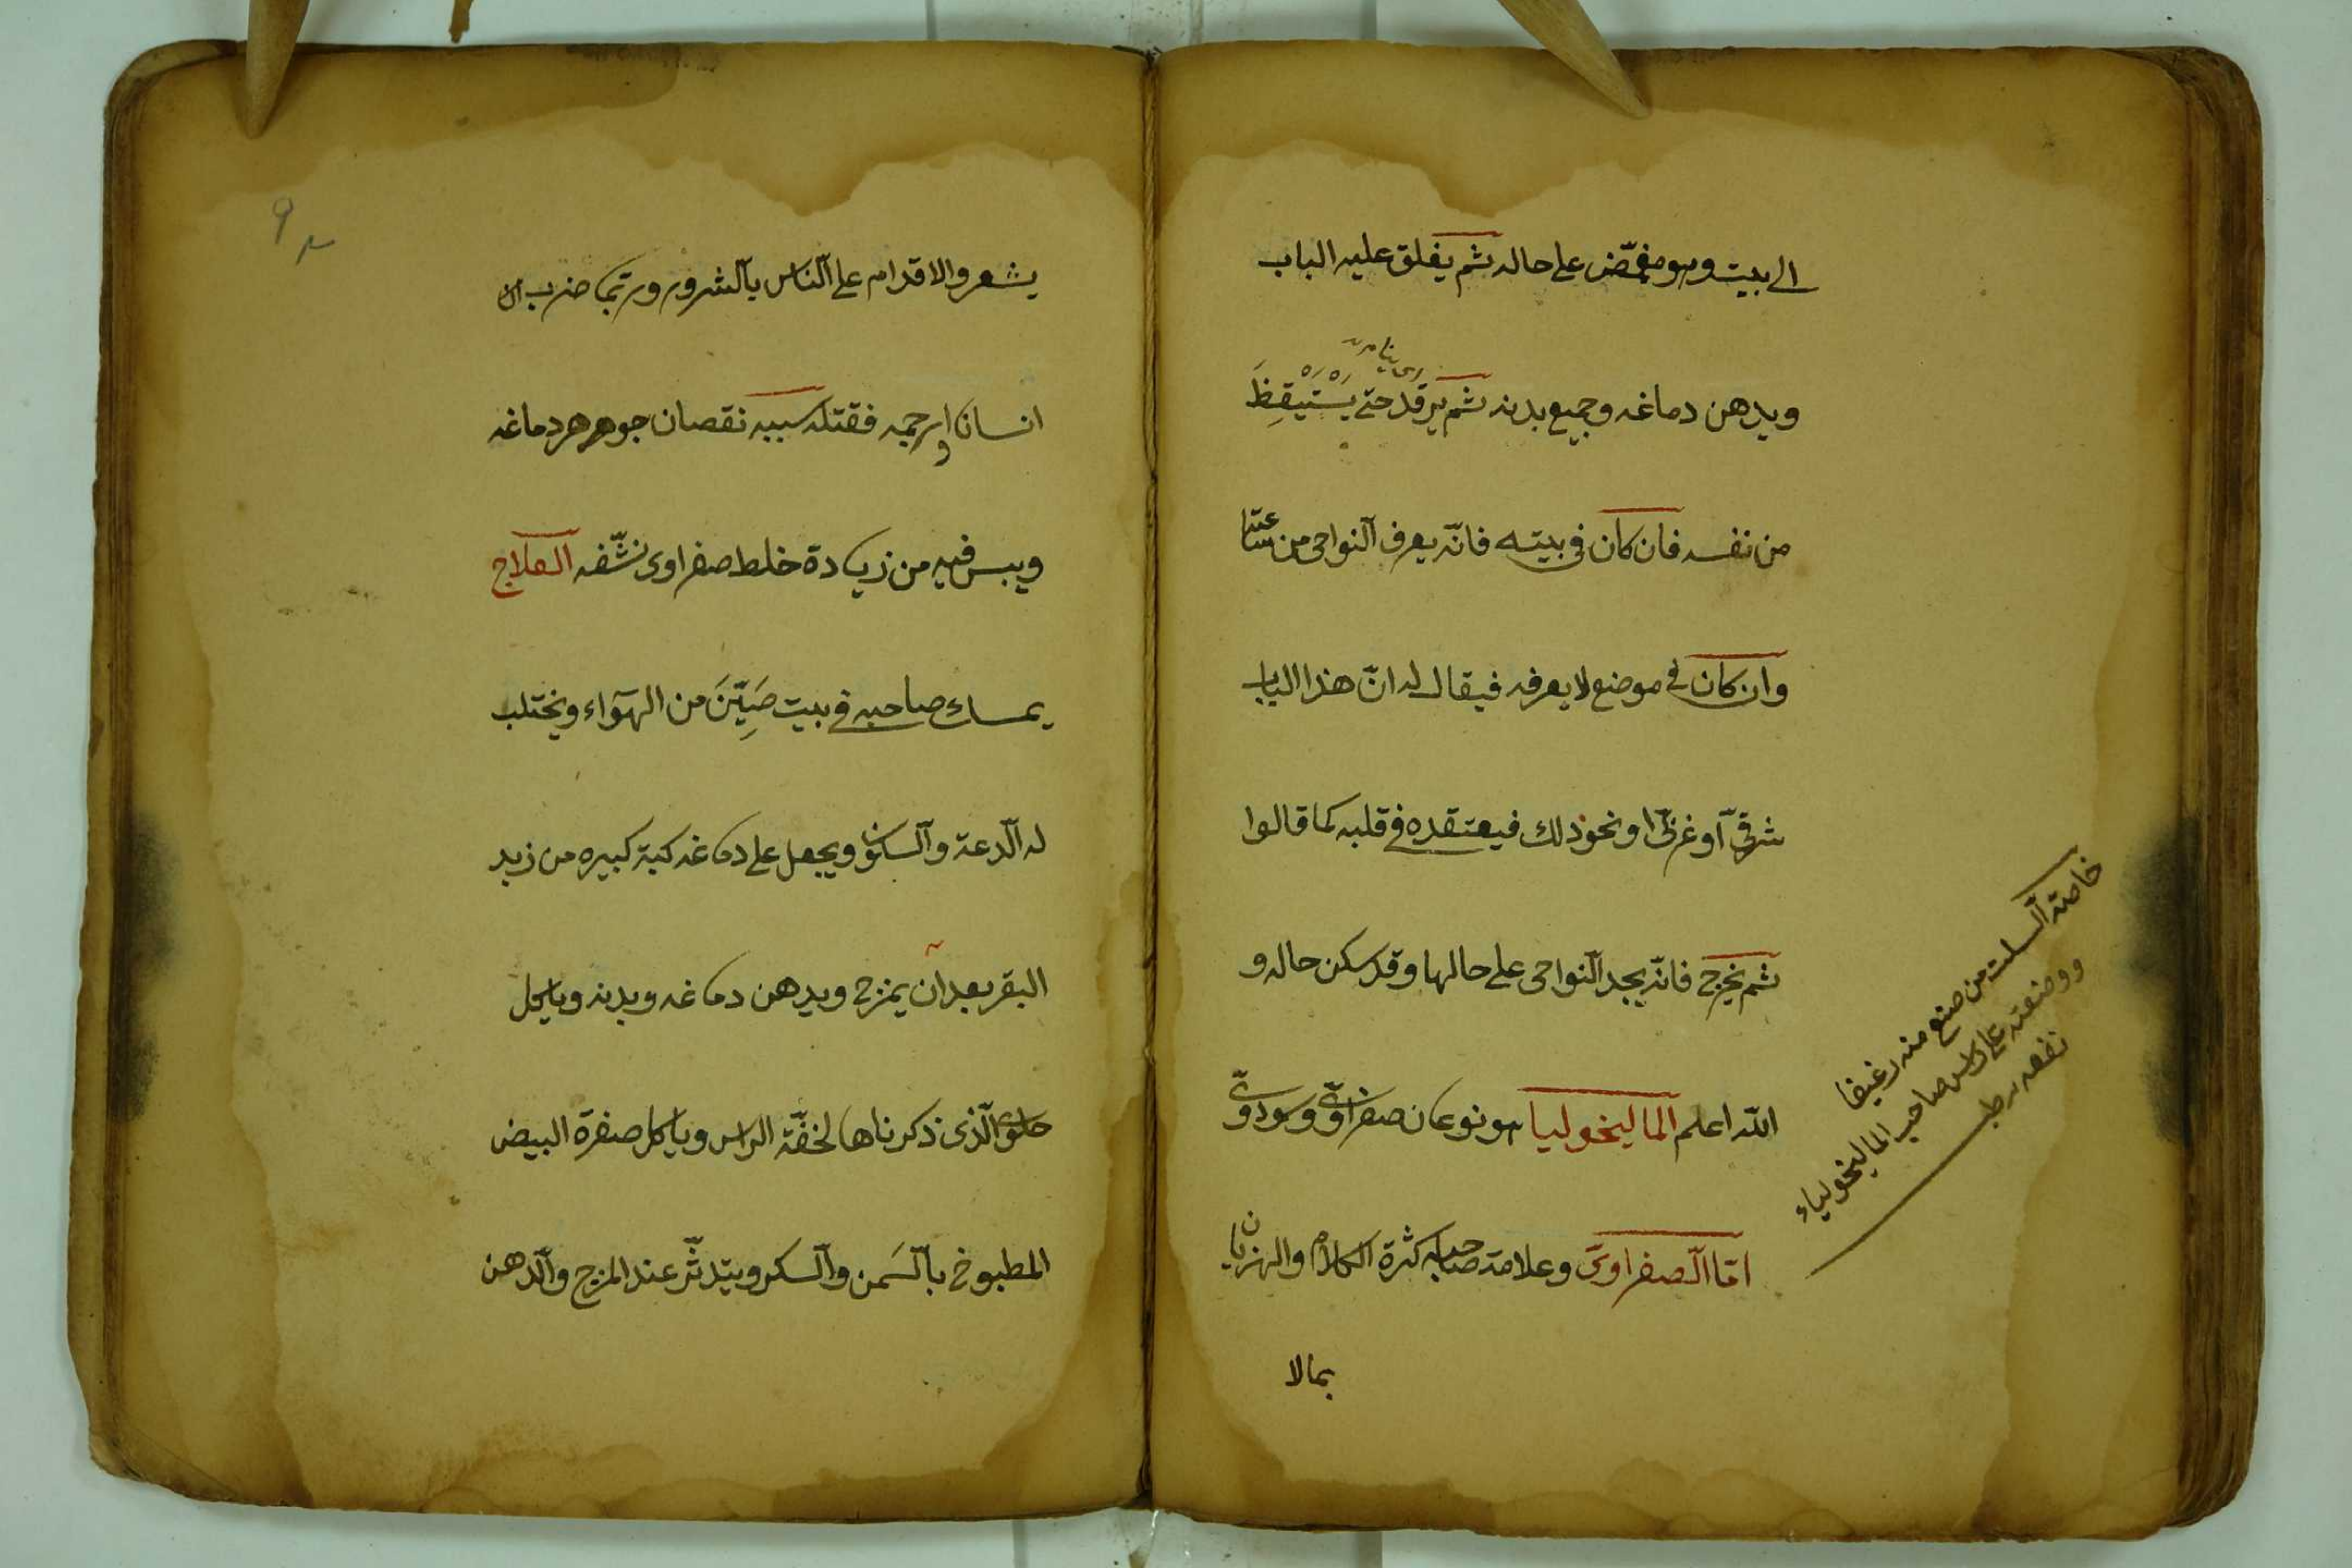 الى بيت وهو مغمّض على حاله ثم يغلق عليه الباب
ويدهن دماغه وجميع بدنه ثم يرقد حتى يَسْتَيْقِظَ
اى ينام
من نفسه فان كان فى بيته فانّه يعرف النواحى من ساعته
وان كان فى موضع لا يعرفه فيقال له انّ هذا الباب
شرقىّ او غربىّ او نحو ذلك فيعتقده فى قلبه كما قالوا
ثم يخرج فانّه يجد النواحى على حالها وقد سكن حاله و
الله اعلم الماليخوليا هو نوعان صفراوىّ وسوداوىّ
امّا الصفراوىّ وعلامة صاحبه كثرة الكلام والهزيان
بمالا
خاصّة السلت من صنع منه رغيفا
ووضعته على راس صاحب الماليخولياء
نفعه
٩
يشعر والاقدام على النّاس بالشرور وربّما ضرب
انسانا او رجمه فقتله سببه نقصان جوهر دماغه
ويبس فيه من زيادة خلط صفراوى نشّفه العلاج
يمسك صاحبه فى بيت صَيِّنَ من الهوآء ويختلب
له الدعة والسكون ويجعل على دماغه كبة كبيره من زبد
البقر بعد ان يمزج ويدهن دماغه وبدنه وياكل
حلوى الّذى ذكرناها لخفّة الراس وياكل صفرة البيض
المطبوخ بالسَمن والسكر ويتدثّر عند المزج والدهن